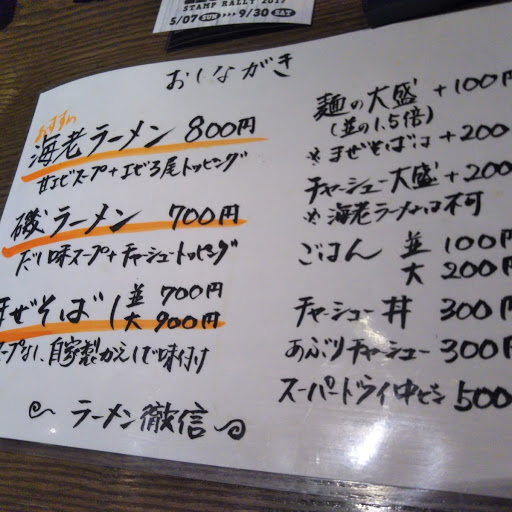 STAMP RALLY 2017
5/07 SUN 9/30 SAT
おしながき
おすすめ
海老ラーメン 800円
甘エビスープ+エビ3尾トッピング
磯ラーメン 700円
だし味スープ+チャーシュートッピング
まぜそば 並 700円
大 900円
スープなし、自家製かえしで味付け
ラーメン徹信
麺の大盛 +100円
(並の1.5倍)
※まぜそばは +200
チャーシュー大盛 +200
※海老ラーメンは不可
ごはん 並 100円
大 200円
チャーシュー丼 300円
あぶりチャーシュー 300円
スーパードライ中ビン 500